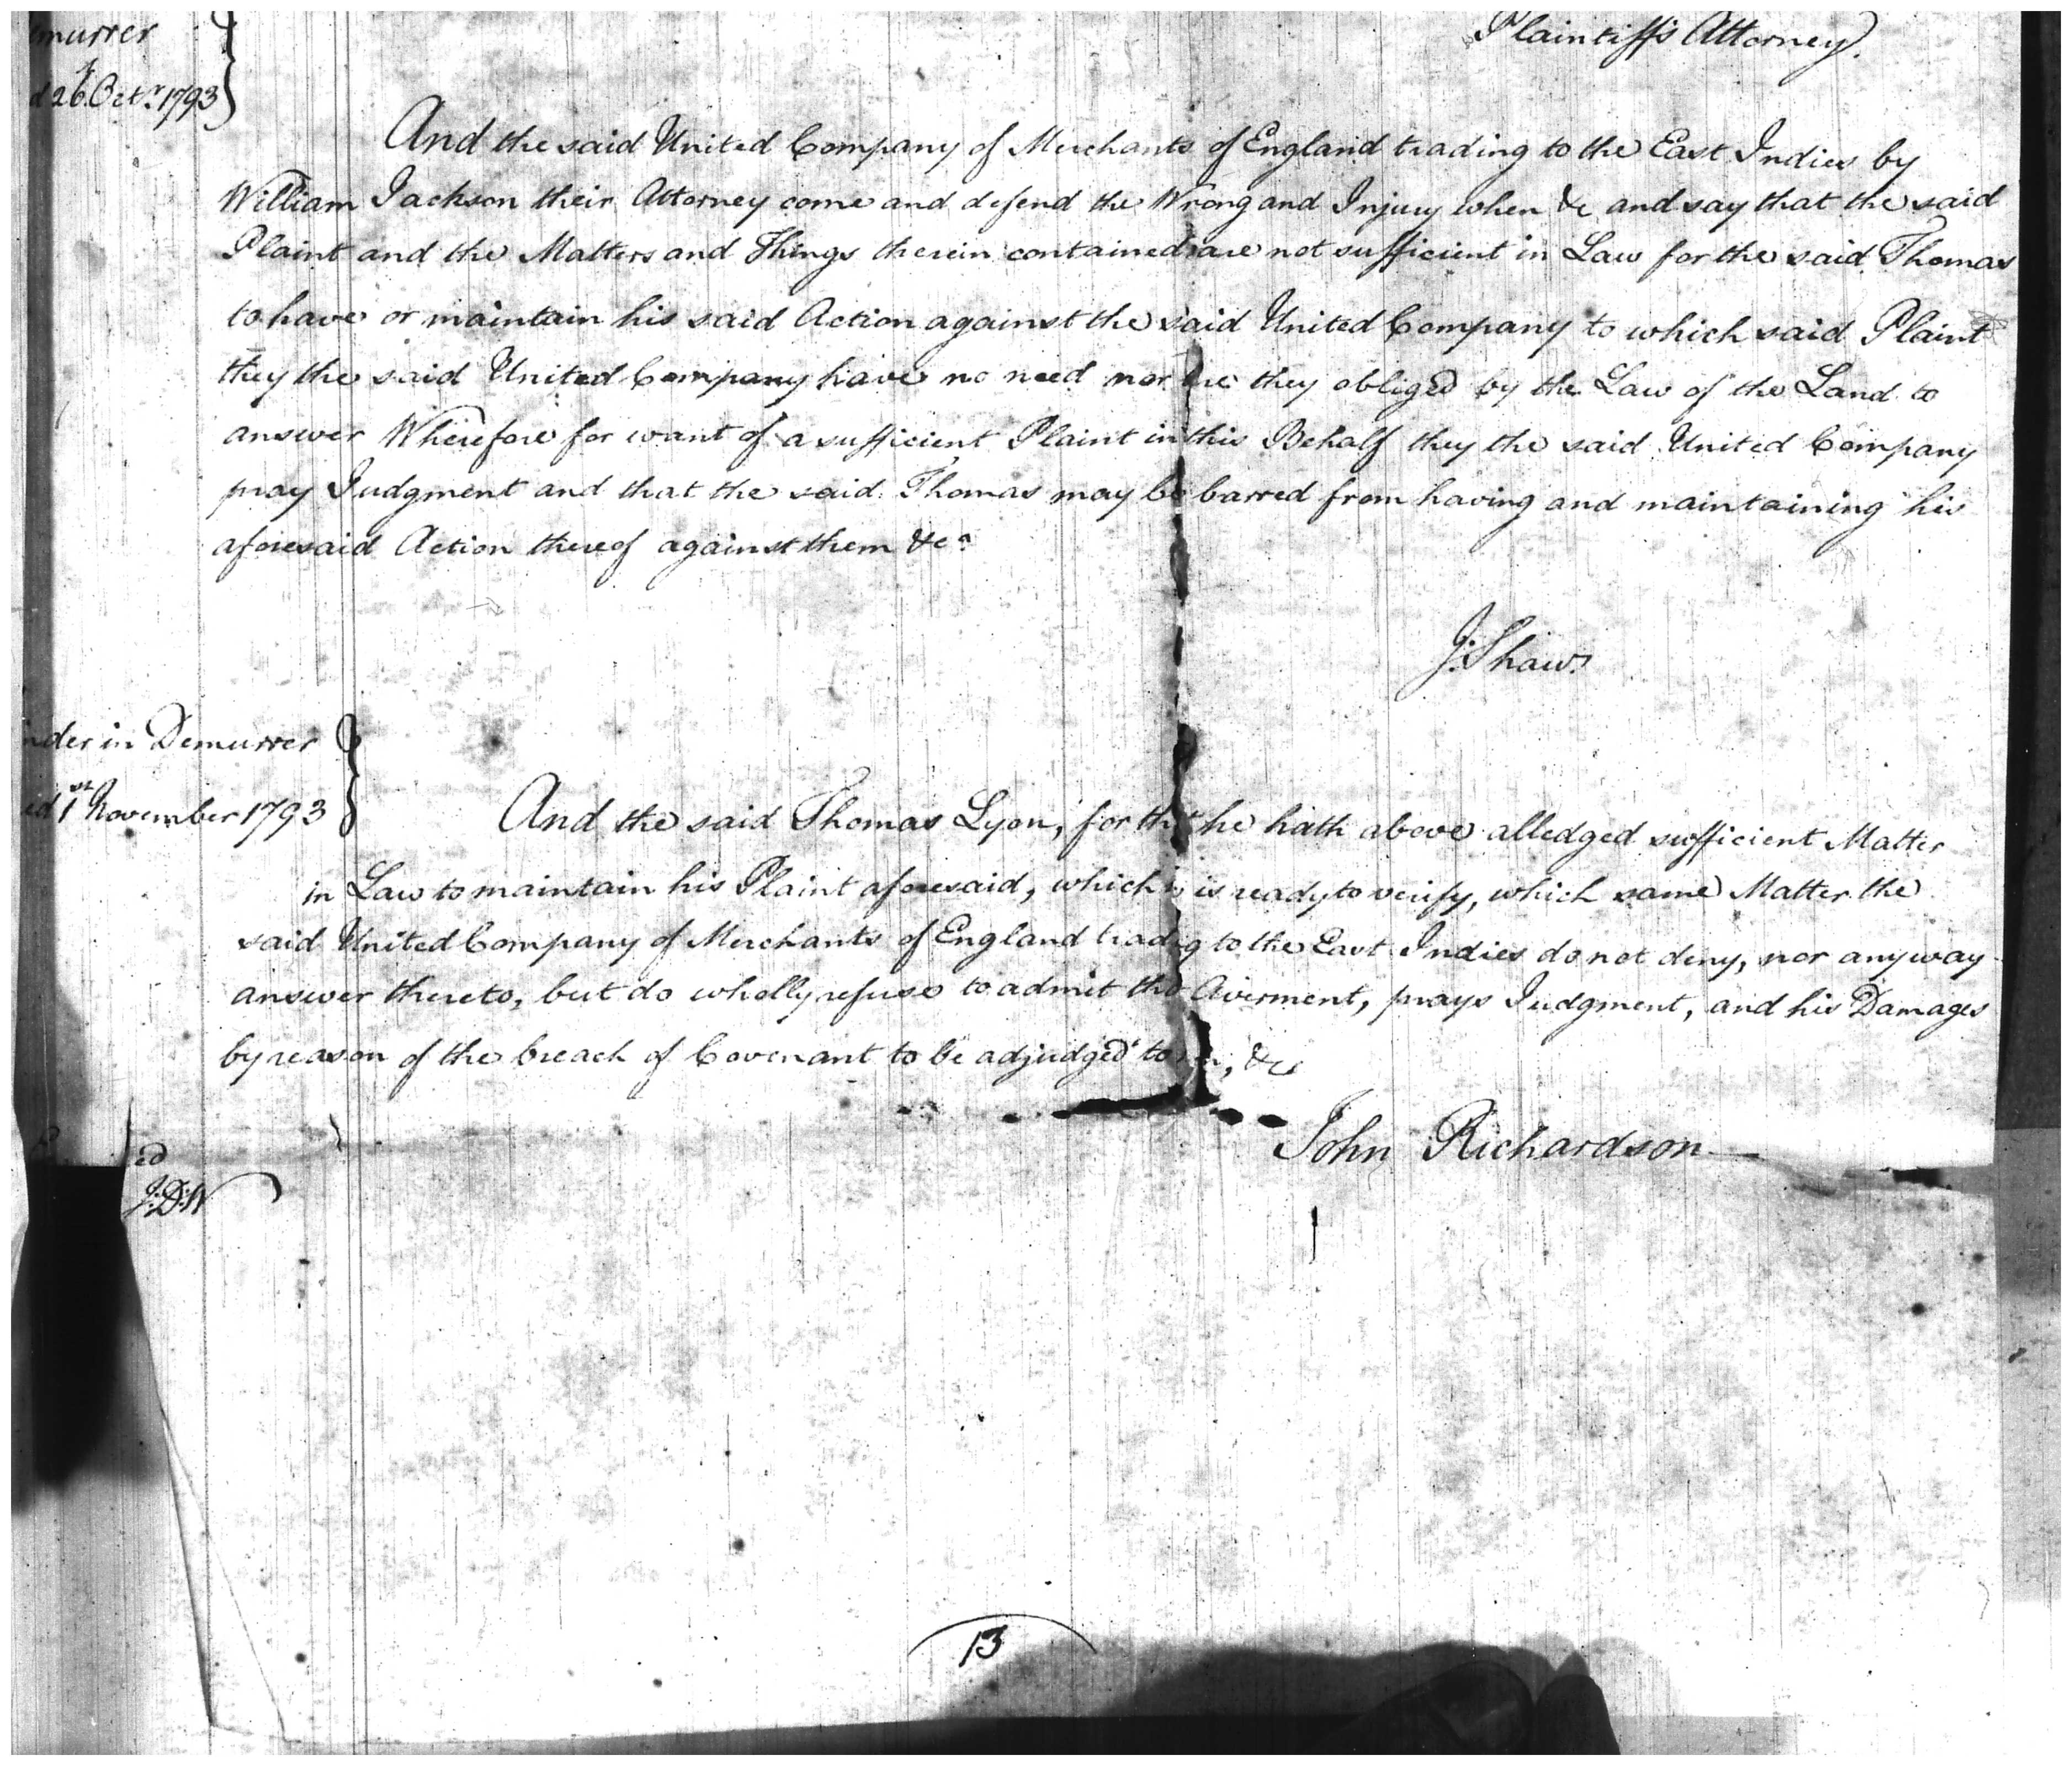 Plaintiffs Attorney.
murrer
d 26. Octr. 1793
And the said United Company of Merchants of England trading to the East Indies by
William Jackson their Attorney come and defend the Wrong and Injury when &c and say that the said
Plaint and the Matters and Things therein contained are not sufficient in Law for the said Thomas
to have or maintain his said Action against the said United Company to which said Plaint
they the said United Company have no need nor are they obliged by the Law of the Land to
answer Wherefore for want of a sufficient Plaint in this Behalf they the said United Company
pray Judgment and that the said Thomas may be barred from having and maintaining his
aforesaid Action thereof against them &ca
J. Shaw.
nder in Demurrer
ed 1st November 1793
And the said Thomas Lyon, for tht he hath above alledged sufficient Matter
in Law to maintain his Plaint aforesaid, which is ready to verify, which same Matter the
said United Company of Merchants of England tradig to the East Indies do not deny, nor any way
answer thereto, but do wholly refuse to admit the Averment, prays Judgment, and his Damages
by reason of the breach of Covenant to be adjudged to &c
John Richardson
ed
J:D:W
13